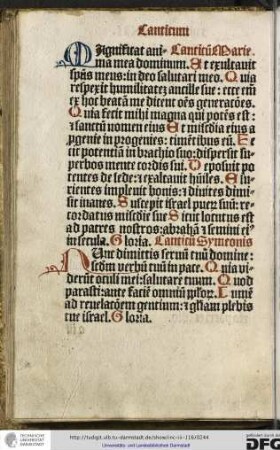 Canticum
Magnificat ani- Canticū Marie.
ma mea dominum. Et exultauit
spūs meus: in deo salutari meo. Quia
respexit humilitatez ancille sue: ecce em̄
ex hoc beatā me dicent oēs generacōes.
Quia fecit mihi magna qui potēs est:
et sanctū nomen eius Et miscdia eius a
ꝓgenie in progenies: timētibus eū. Fe
cit potentiā in brachio suo: dispersit su
perbos mente cordis sui. Deposuit po
rentes de sede: et exaltauit hūiles. Esu
rientes impleuit bonis: et diuites dimi
sit inanes. Suscepit israel puez suū: re
cordatus miscdie sue Sicut locutus est
ad patres nostros: abrahā et semini eiꝰ
in secula. Gloria. Canticū Symeonis
Nunc dimittis seruū tuū domine:
scdm verbū tuū in pace. Quia vi
derūt oculi mei: salutare tuum. Quod
parasti: ante faciē omniū
ad reuelacōem gentium: et glām plebis
tue israel. Gloria.
TECHNISCHE
UNIVERSITÄT
DARMSTADT
http://tudigit.ulb.tu-darmstadt.de/show/inc-iii-118/0244
Universitäts- und Landesbibliothek Darmstadt
gefördert durch die
DFG